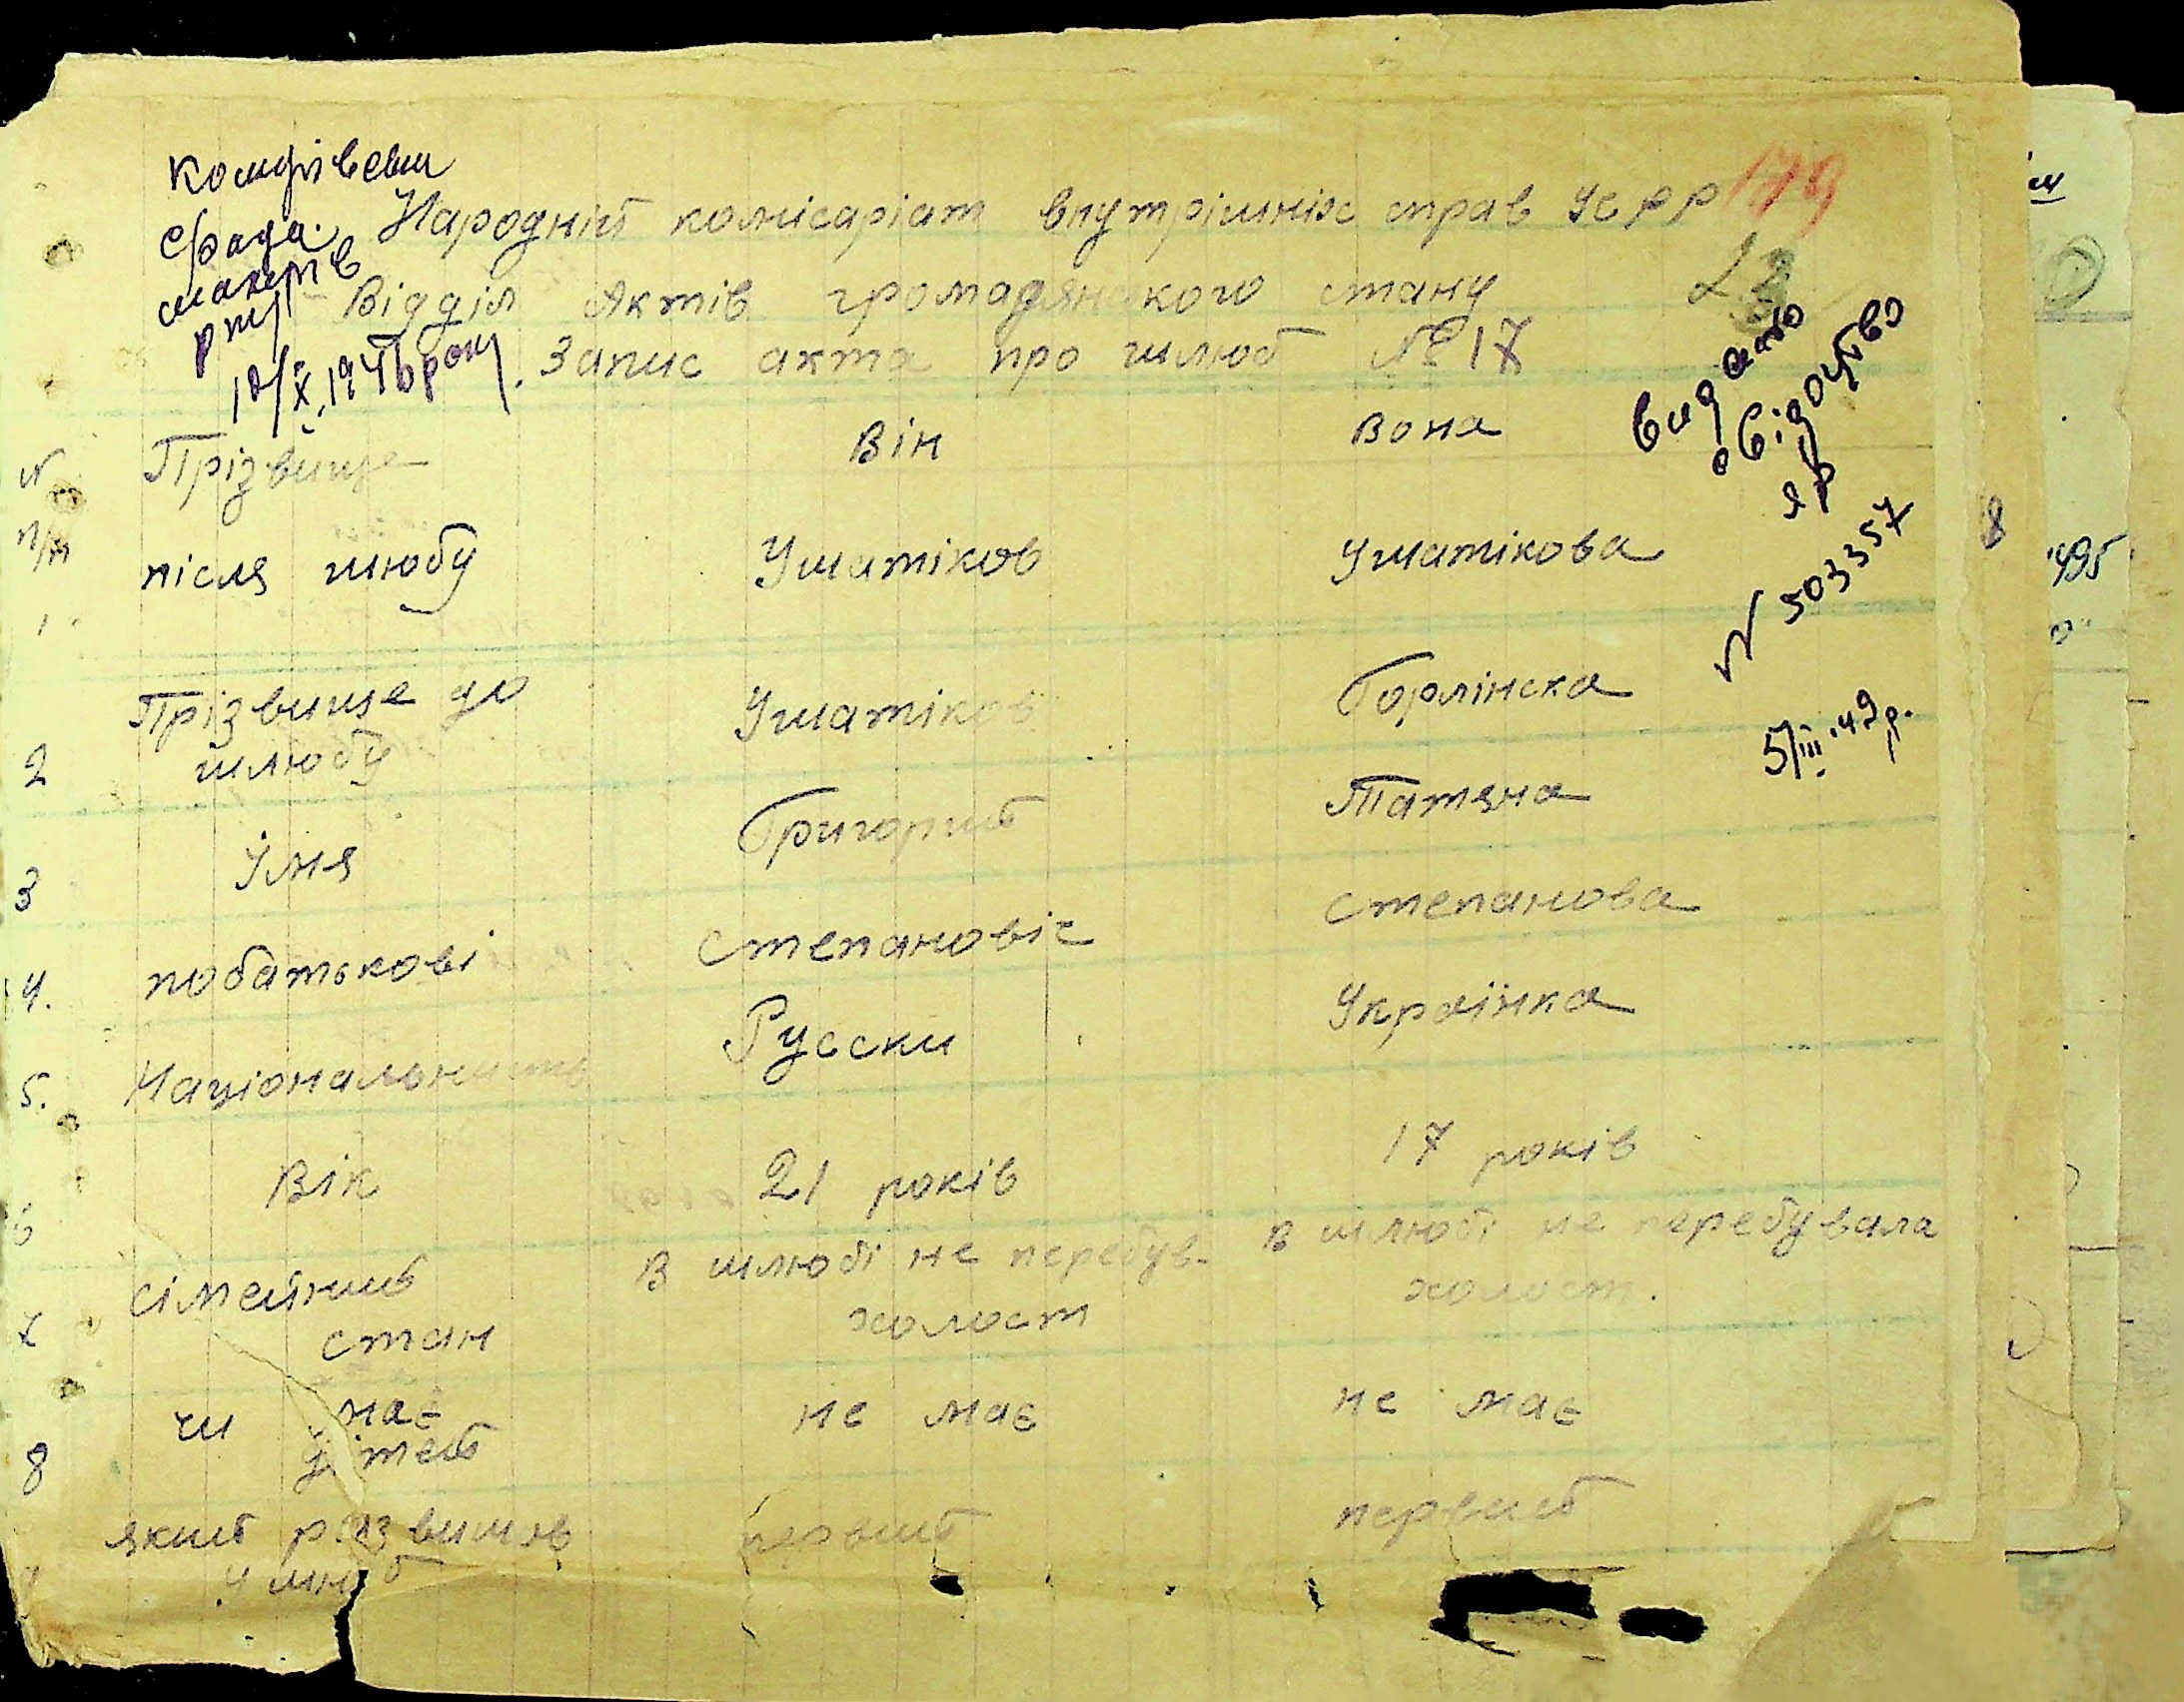 с/рада
179
Народний комісаріат внутрішніх справ УСРР
Відділ Актів громадянского стану
23
Запис акта про шлюб № 17
10/X.1946 року
Видано
свідоцтво
ЯР
N 503357
5/III.49 р.
N п/п
Прізвище
Він
Вона
1.
після шлюбу
Ушатіков
Ушатікова
2
Прізвище до
шлюбу
Ушатіков
Горлінска
3
Імя
Григорий
Татяна
4.
побатькові
Степановіч
Степанова
5.
Національность
Русски
Українка
6
Вік
21 років
17 років
7
сімейний
стан
В шлюбі не перебув-
холост
В шлюбі не перебувала
холост.
8
чи має
дітей
не має
не має
який
первий
первий
8
495